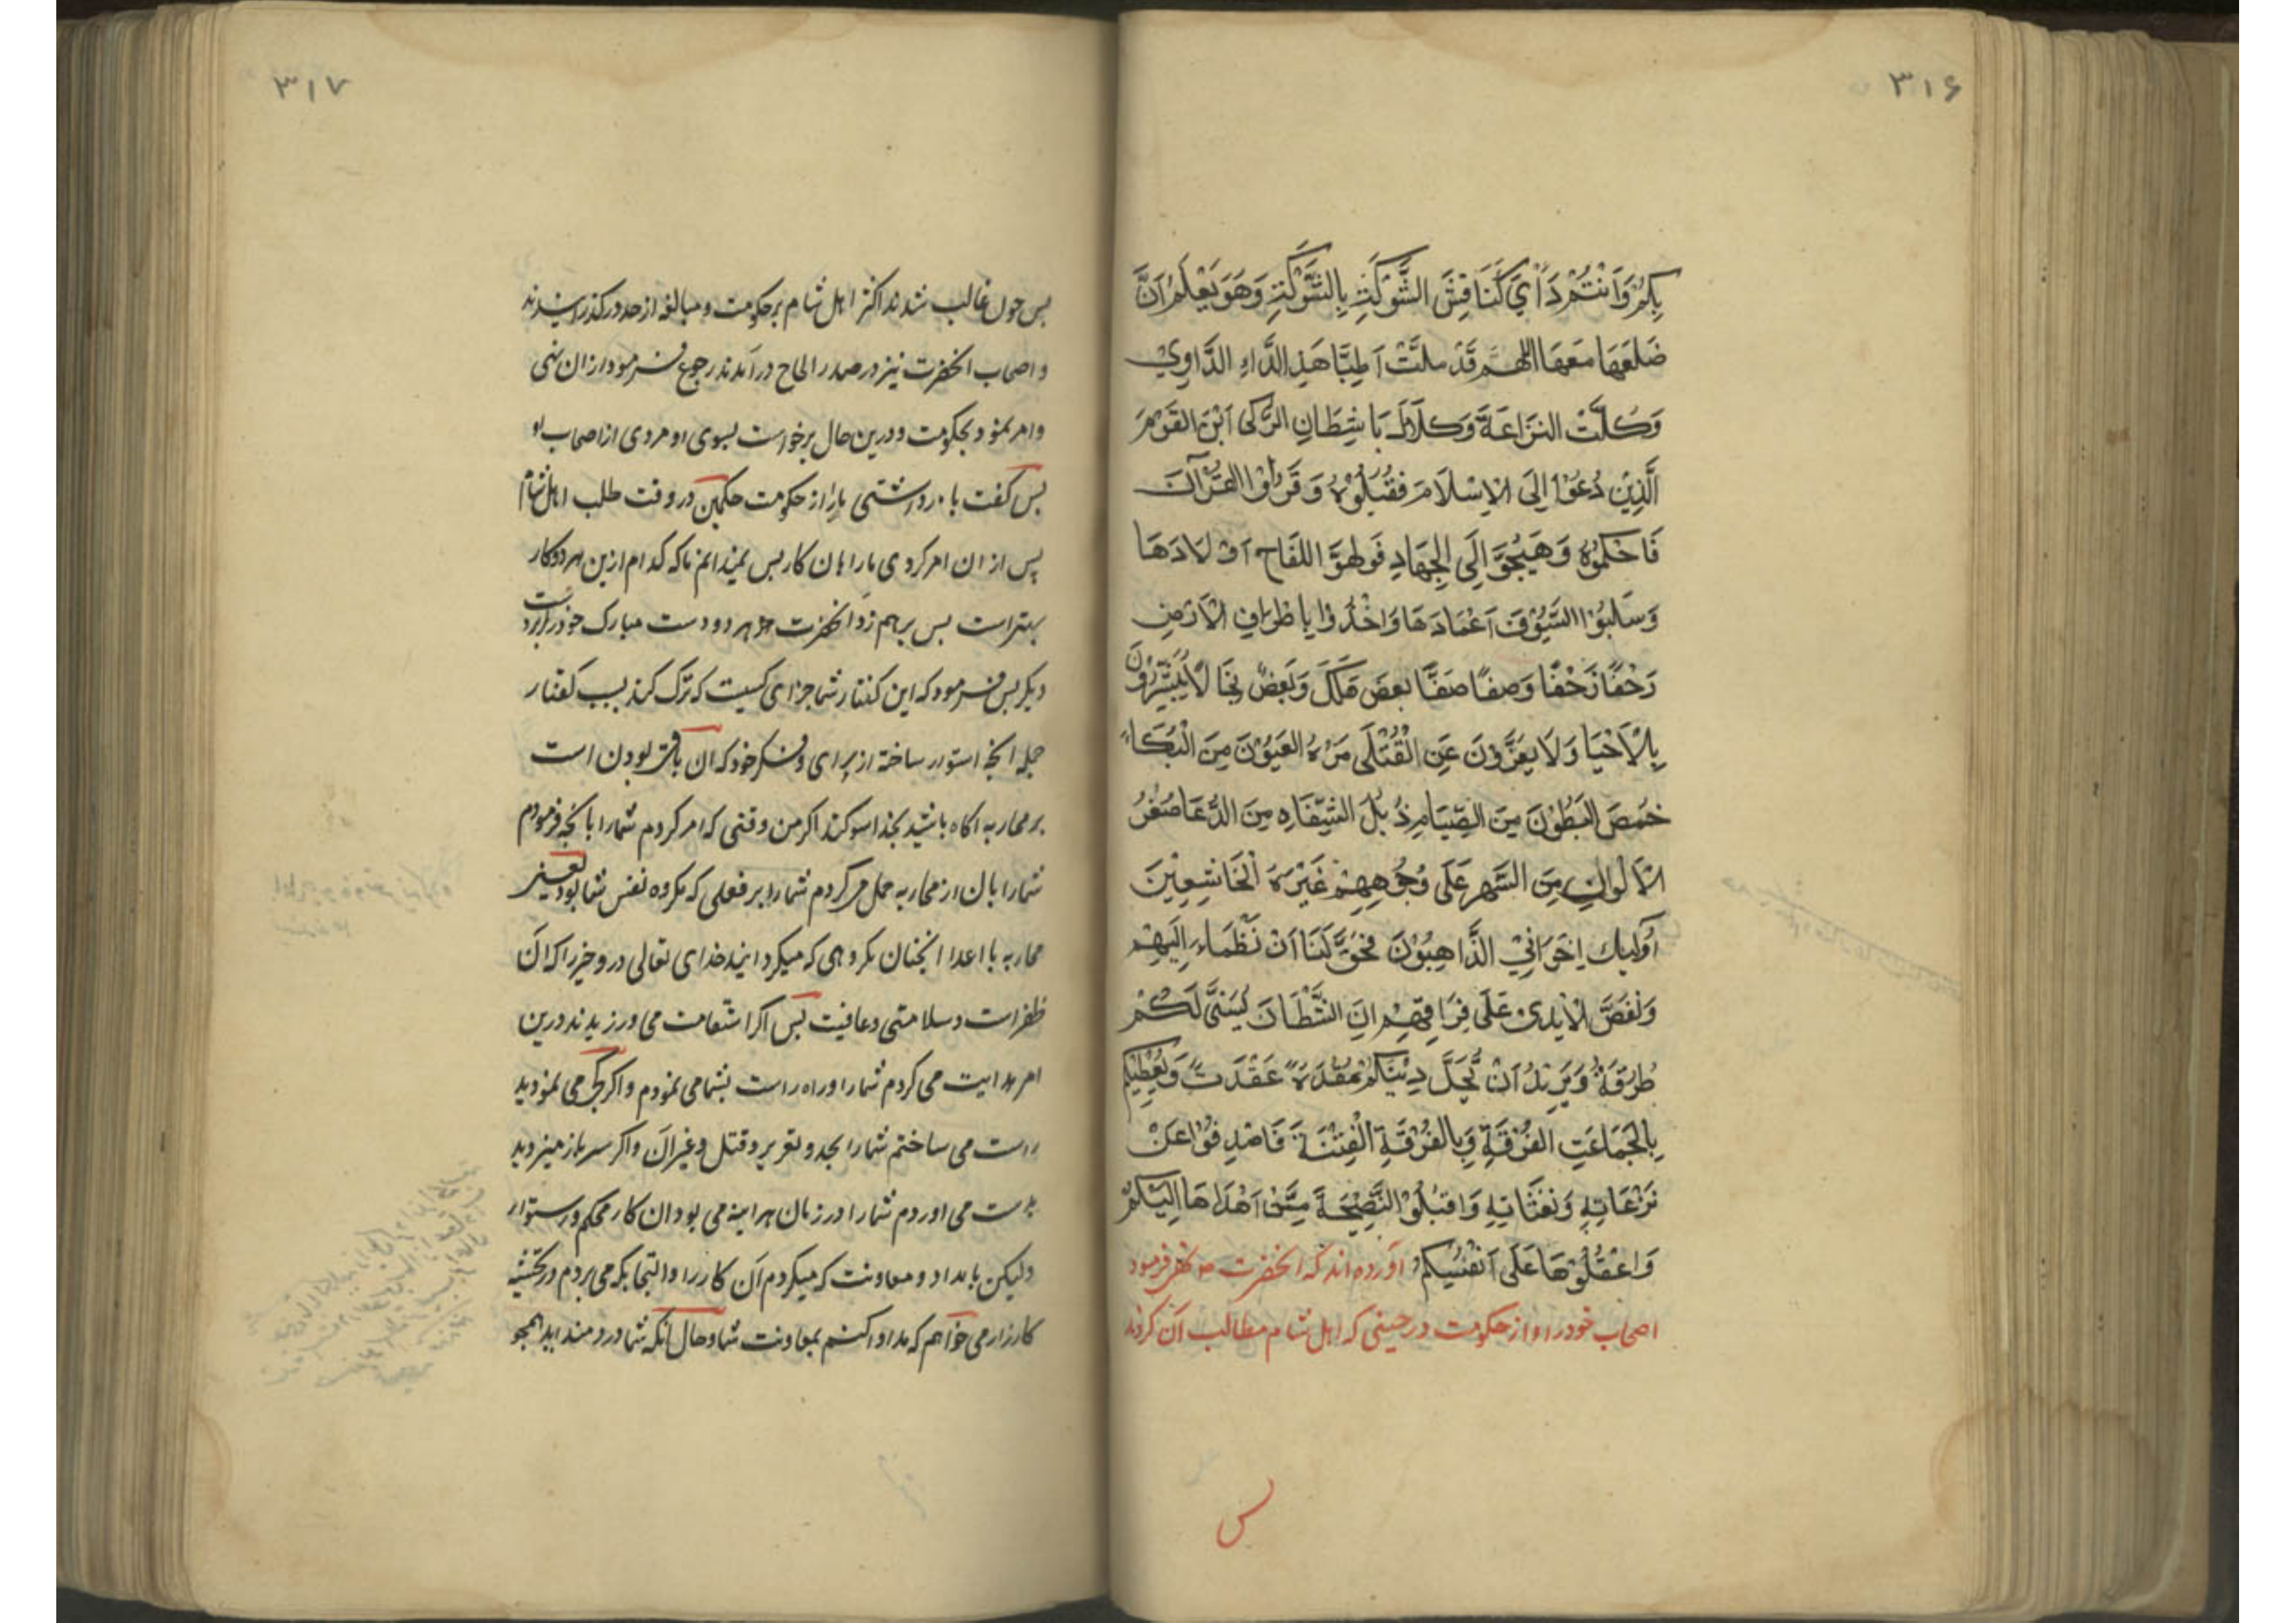 ۳۱۶
بِكُمْ وَاَنْتُمْ دَاۤئِي كَنَاقِشِ الشَّوْكَةِ بِالشَّوْكَةِ وَهُوَ يَعْلَمُ اَنَّ
ضَلَعَهَا مَعَهَا اللهم قَدْ ملتْ اَطِبَّا هَذِ الدَّاءِ الدَّاوِيْ
وَكَلَّتْ النزاعَة
الَّذِيْنَ دُعُوْا اِلَى الاِسْلَامَ فَقَبَلُوْهُ وَقَرَاوُا القُرْآنَ
فَاحَكمُوْهُ وَهَيْجُوَا اِلَى الجِهَادِ فَولهوَا اللقَاح اَوْلَادَهَا
وَسَلَبُوْا السَّيُوْفَ اَغْمَادَهَا وَاَخْذُوا باطْرافِ الاَرْضِ
زَحْفًا زَحْفًا وَصفًا صَفًّا بعضَ هَلَكَ وَبَعضٌ نجَا لَا يُبَشّرُوْنَ
بِالْاَحْيَا وَلَا يعَزَّوْنَ عَنِ الْقُتْلَى مَرْهُ العَيُوْنَ مِنَ الْبُكَاءِ
خمصَ البَطُوْنَ مِنَ الصّيَامِ ذُبُلَ الشِّفَاهِ مِنَ الدُّعَا صُفْرُ
الاَلْوانِ مِنَ السَّهرِ عَلَى وُجُوْهِهِمْ غَبَرَهُ الْخَاشِعِيْنَ
اُولٰئِكَ اِخَوَانِيْ الذَّاهِبُوْنَ فَحُقَّ لَنَا اَنْ نَظْمَاءَ اِلَيهِمْ
وَنَعُضَّ الْاَيْدِيْ عَلَى فِرَاقِهِمْ اِنَ الشَّطَانَ يُسَنّى لَكُمْ
طُرُقَهُ وَيَرِيْدُ اَنْ يُّحَلَّ دِيْنَكُمْ عُقْدَةً عَقْدَتً وَيُعْطِيْكُمْ
بِالجَمَاعَتِ الفُرْقَةَ وَبِالفُرْقَةِ الْفِتْنَةَ فَاصْدِفُوْا عَنْ
نَزَغَاتِهِ وَنَفَثَاتِهِ وَاقبَلُوْا النَّصِيْحَةَ مِمَّنْ اَهْدَاهَا اِلَيْكُمْ
وَاعْقُلُوْهَا عَلَى اَنْفُسِكُمْ آورده اند که انحضرت نهی فرمود
اصحاب خود را از حکومت در حینی که اهل شام مطالب آن کردند
پس
۳۱۷
پس چون غالب شدند اکثر اهل شام بر حکومت و مبالغه از حد در گذرانیدند
و اصحاب انحضرت نیز در صدر الحاح درآمدند رجوع فرمود از ان نهی
و امر نمود بحکومت و درین حال برخواست بسوی او مردی از اصحاب او
پس گفت باز داشتی ما را از حکومت حکمین در وقت طلب اهل شام
پس از ان امر کردی ما را بان کار پس نمیدانم ما که کدام ازین هر دو کار
بهتر است پس بر هم زد انحضرت هر دو دست مبارک خود را
دیگر پس فرمود که این گفتار شما جزای کسیت که ترک کند بسبب گفتار
جمله انچه استوار ساخته از برای و فکر خود که ان باقی بودن است
بر محاربه اکاه باشید بخدا سوکند اکر من وقتی که امر کردم شما را بانچه فرمودم
شما را بان از محاربه حمل می کردم شما را بر فعلی که مکروه نفس شما بود یعنی
محاربه با اعدا انچنان مکروهی که میکرداینید خدای تعالی درو خیر را که آن
ظفر است و سلامتی و عافیت پس اکر استقامت می ورزیدند درین
امر هدایت می کردم شما را و راه راست بشما می نمودم و اکر کجی می نمودید
راست می ساختم شما را بحد و تعزیر و قتل و غیر آن و اکر سر باز میزدید
بدست می اوردم شما را در زمان هراینه می بود ان کار محکم و استوار
ولیکن بامداد و معاونت که میکردم آن کار را و التجا بکه می بردم در
کارزار می خواهم که مداوا کنم بمعاونت شما و حال آنکه شما درد مندید همچو